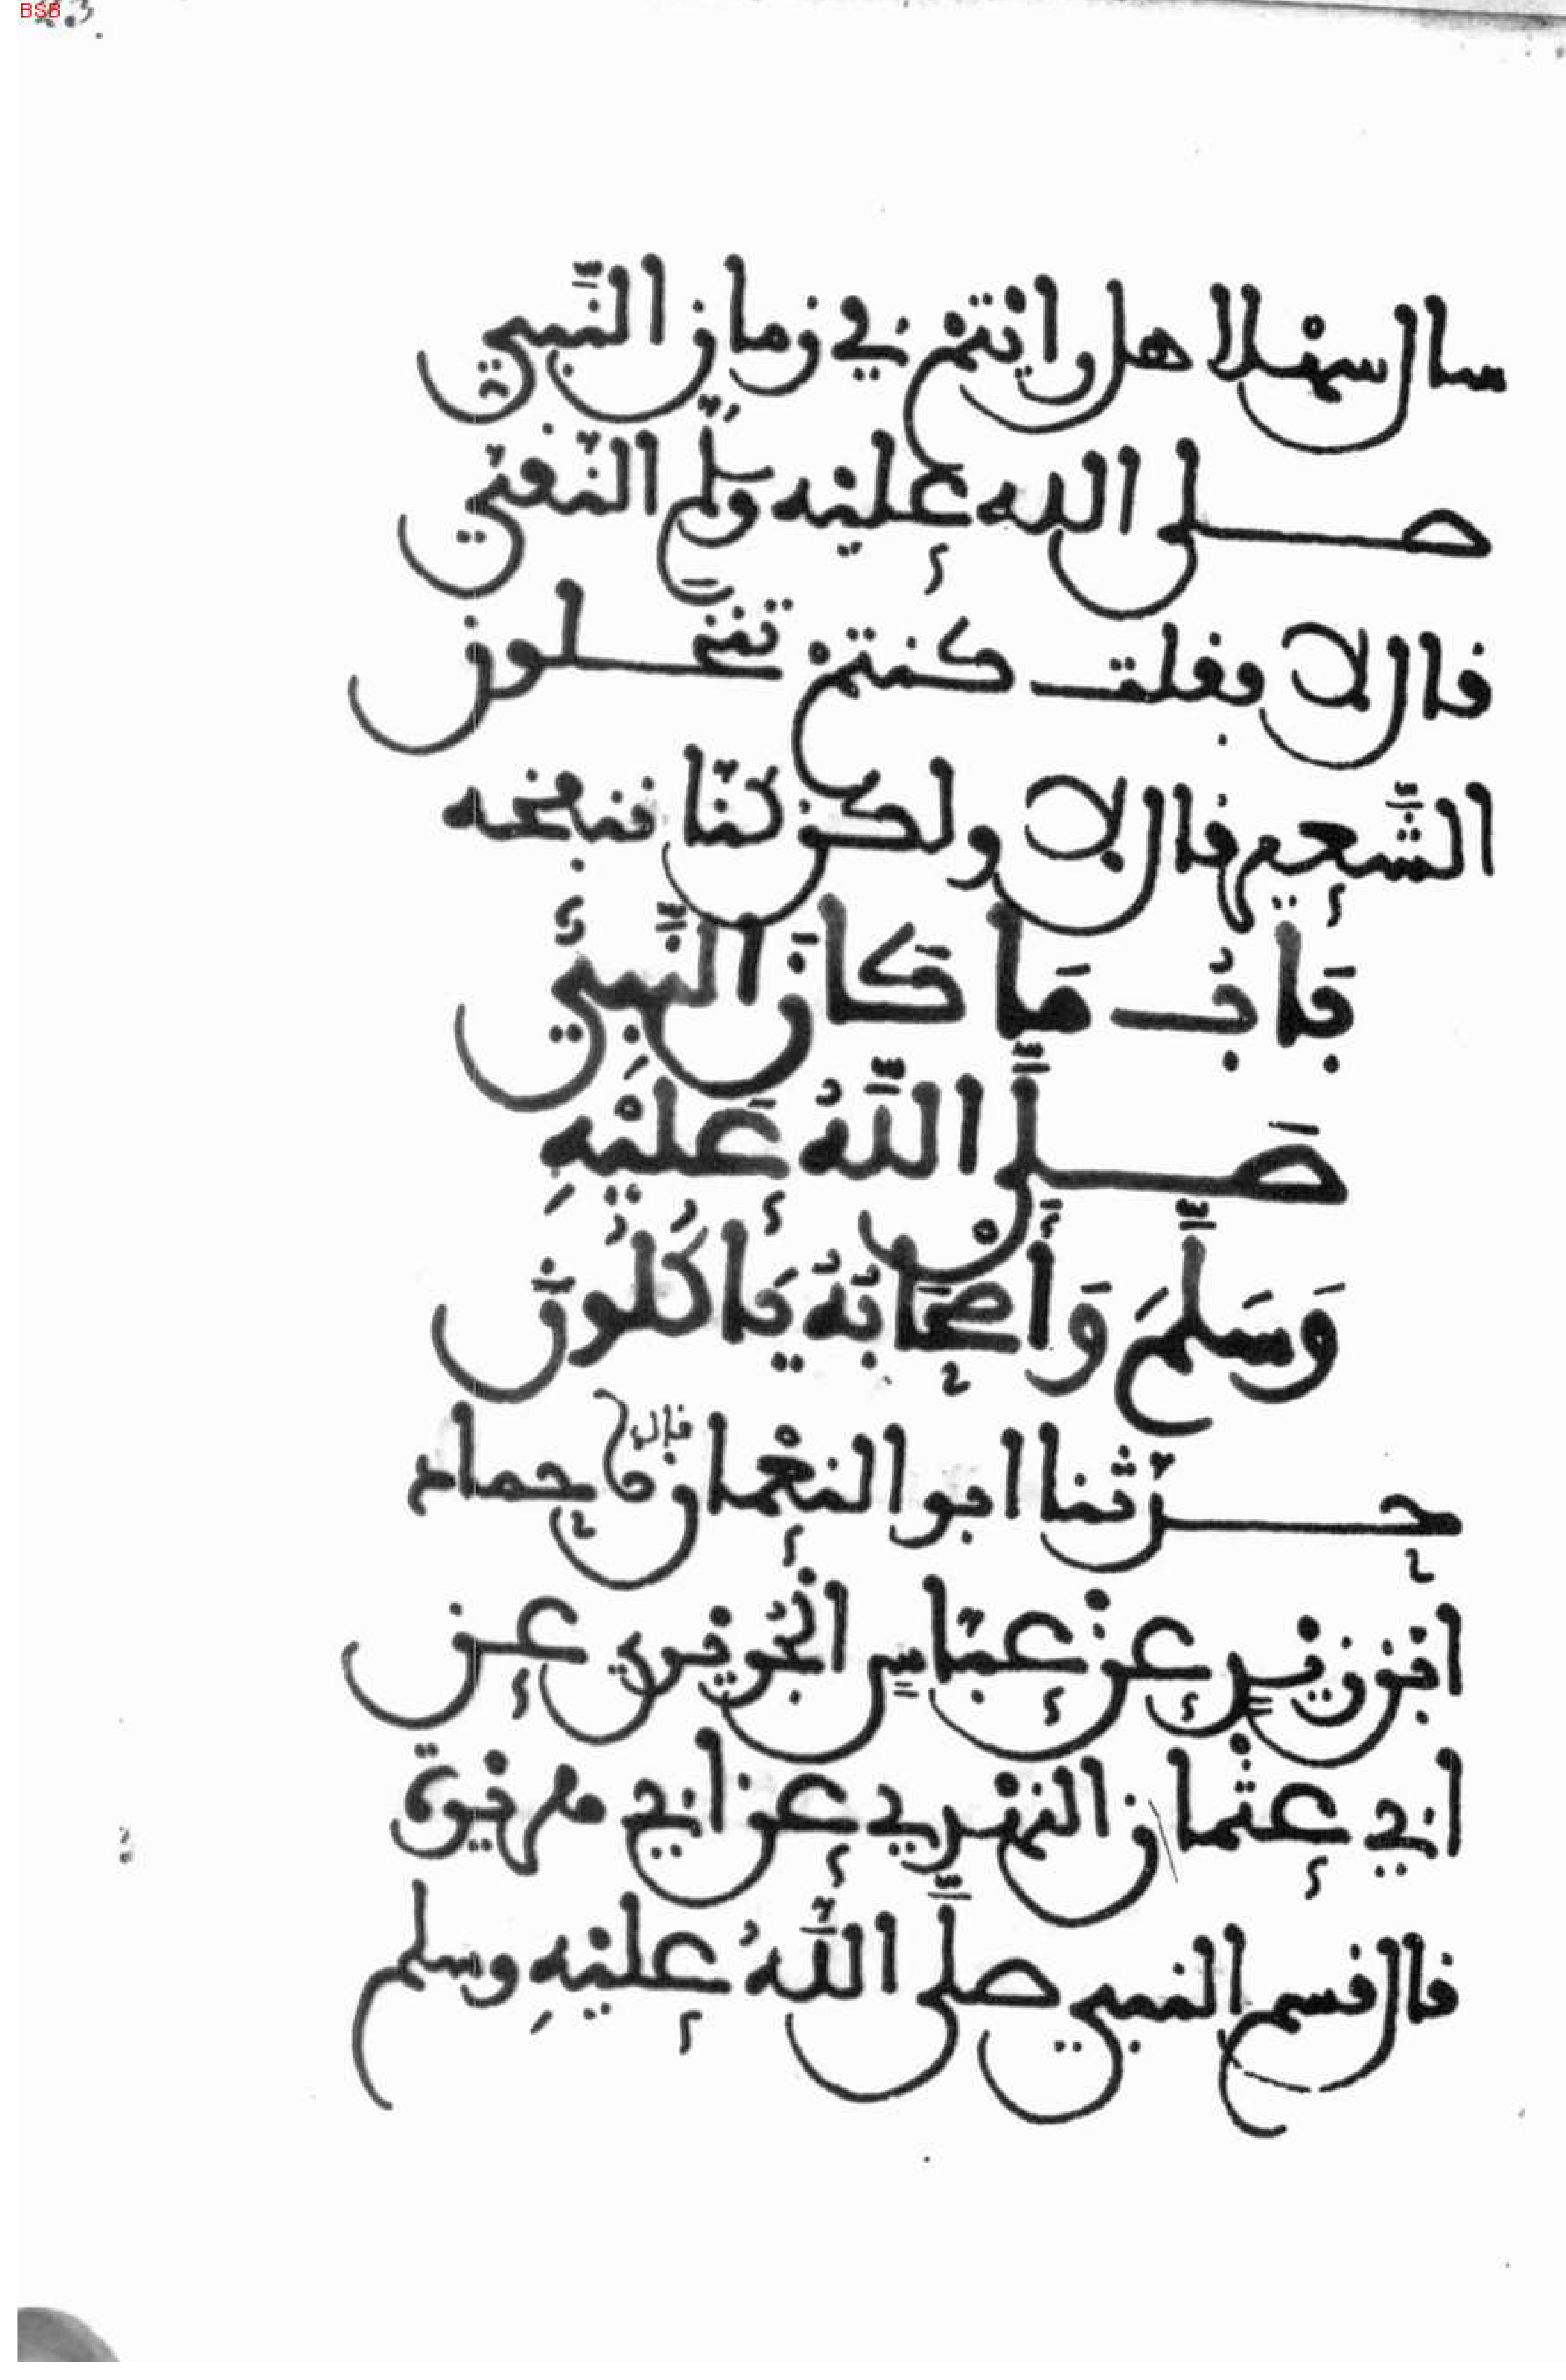 BSB
سال سهلا هل رايتم في زمان النبي
صلى الله عليه وسلم النقي
قال لا فقلت كنتم تنخلون
الشعير قال لا ولكن كنا ننفخه
بَابُ مَا كَانَ النَّبِيُّ
صَلَّى اللَّهُ عَلَيْهِ
وَسَلَّمَ وَأَصْحَابُهُ يَاكُلُونَ
حدثنا ابو النعمان قال نا حماد
ابن زيد عن عباس الجريري عن
ابي عثمان النهدي عن ابي هريرة
قال قسم النبي صلَّى اللَّهُ عليْهِ وسلم